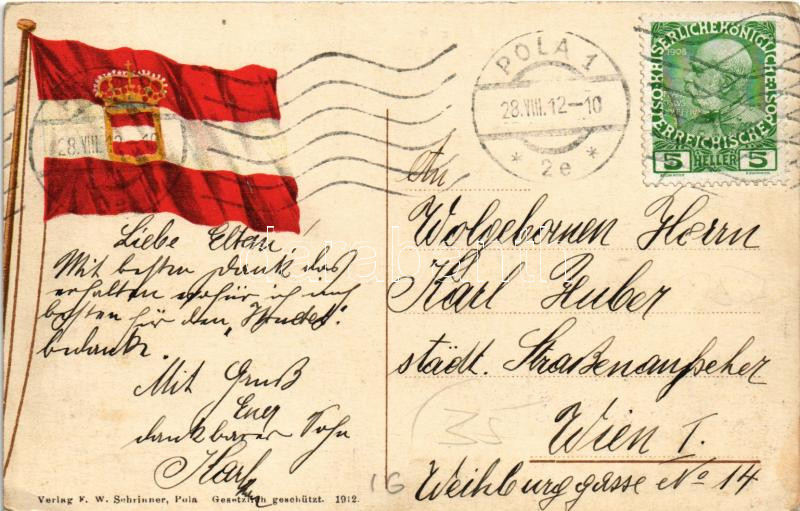 POLA 1
28.VIII.12-10
* 2e *
1908
KAISERLICHE KÖNIGLICHE ÖSTERREICHISCHE
5 HELLER 5
Liebe Eltern!
Mit besten Dank das
erhalten wofür ich euch
besten für den "
bedankt.
Mit Gruß
Euer
dankbarer Sohn
Karl
An
Wolgebornen Herrn
Karl Huber
städt. Straßenaufseher
Wien I.
Weihburggasse No 14
35
16
Verlag F. W. Schrinner, Pola Gesetzlich geschützt. 1912.
darabanth